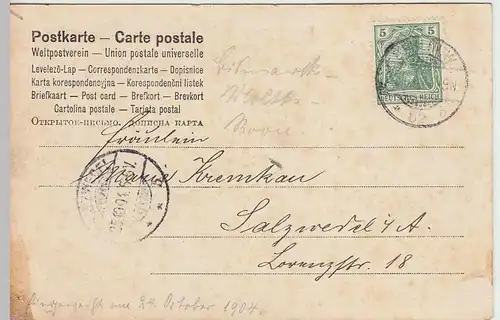 Postkarte — Carte postale
Weltpostverein — Union postale universelle
Levelező-Lap — Correspondenzkarte — Dopisnice
Karta korespondencyjna — Korespondenční listek
Briefkaart — Post card — Brefkort — Brevkort
Cartolina postale — Tarjeta postal
Открытое-письмо. Дописна карта
5 5
REICH
Bismarck-
Moltke-
Roon.
Fräulein
Marie Kremkau
Salzwedel i/A.
Lorenzstr. 18
am 24. October 1904.